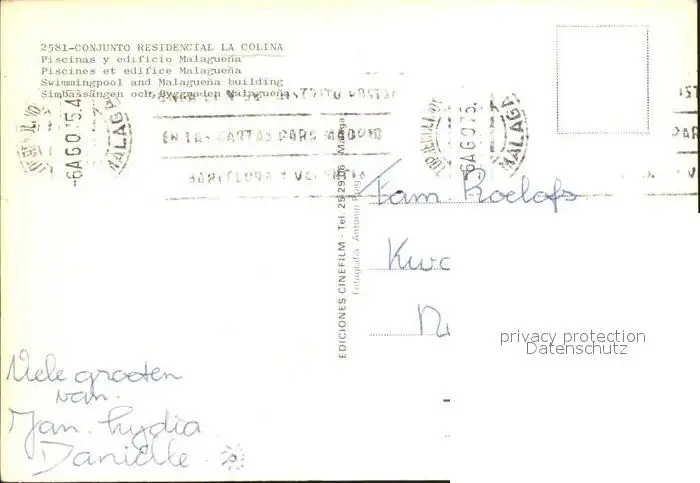 2581-CONJUNTO RESIDENCIAL LA COLINA
Piscinas y edificio Malagueña
Piscines et edifice Malagueña
Swimmingpool and Malagueña building
Simbassängen och Byggnaden Malagueña
-6AGO75.4
MALAGA
EN LAS CARTAS PARA MADRID
BARCELONA Y VALENCIA
6AGO75
MALAGA
EDICIONES CINEFILM - Tel. 25 29 06 - Malaga
Fotografia Antonio
Fam. Roelofs
privacy protection
Datenschutz
Vele groeten
van
Jan. Lydia
Danielle